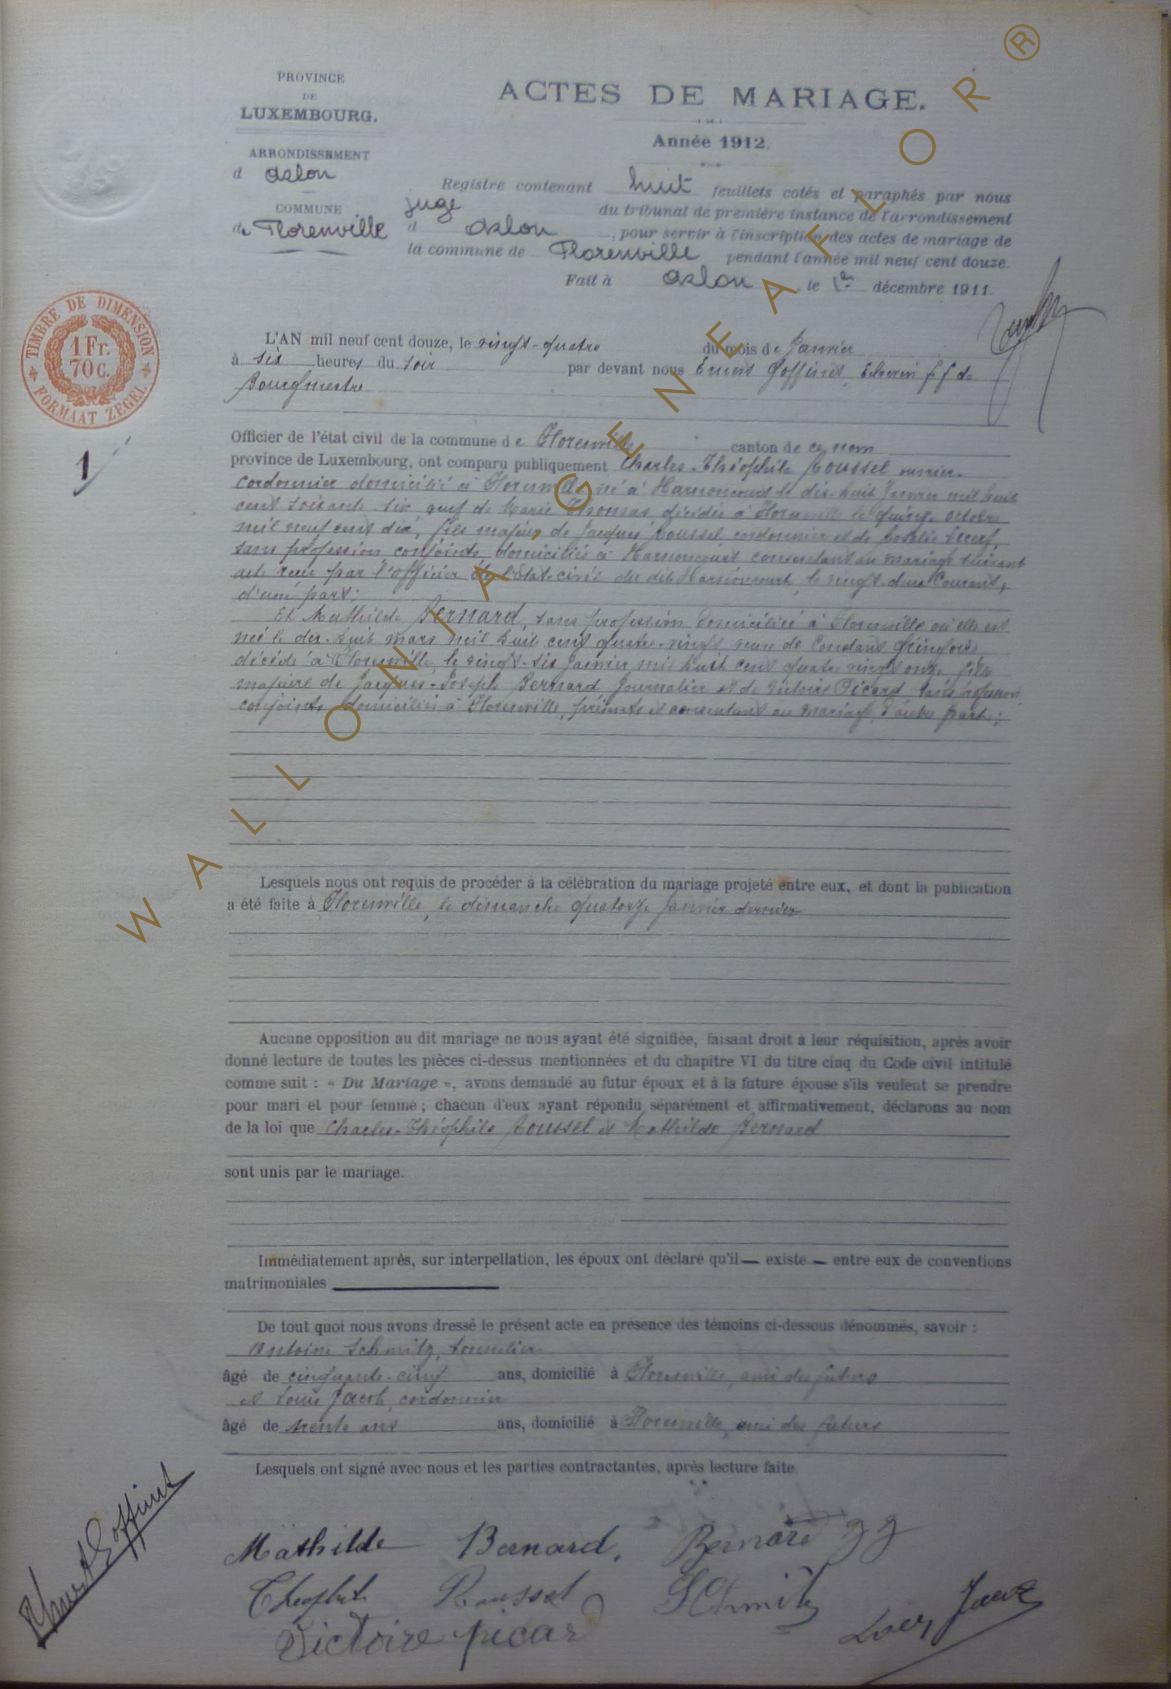 PROVINCE
DE
LUXEMBOURG.
ARRONDISSEMENT
d Arlon
COMMUNE
de Florenville
ACTES DE MARIAGE.
Année 1912.
Registre contenant huit feuillets cotés et paraphés par nous
juge du tribunal de première instance de l'arrondissement
d Arlon, pour servir à l'inscription des actes de mariage de
la commune de Florenville pendant l'année mil neuf cent douze.
Fait à Arlon, le 1er décembre 1911.
TIMBRE DE DIMENSION
1 Fr.
70 C.
FORMAAT ZEGEL
1
L'AN mil neuf cent douze, le vingt-quatre du mois de Janvier
à six heures du soir par devant nous Ernest Goffinet, Echevin f f de
Bourgmestre
Officier de l'état civil de la commune de Florenville canton de ce nom
province de Luxembourg, ont comparu publiquement Charles-Théophile Roussel ouvrier
cordonnier domicilié à Florenville né à Harnoncourt le dix-huit Janvier mil huit
cent soixante-six veuf de Marie Thomas décédée à Florenville le quinze octobre
mil neuf cent dix, fils majeur de Jacques Roussel cordonnier et de Rosalie
sans profession conjoints domiciliés à Harnoncourt consentant au mariage suivant
acte reçu par l'officier de l'Etat-civil du dit Harnoncourt, le vingt-deux Courant,
d'une part;
Et Mathilde Bernard, sans profession domiciliée à Florenville où elle est
née le dix-huit mars mil huit cent quatre-vingt, veuve de Constant
décédé à Florenville le vingt-six Janvier mil huit cent quatre vingt onze fille
majeure de Jacques-Joseph Bernard Journalier et de Victoire Picard sans profession
conjoints domiciliés à Florenville, présents et consentant au mariage, d'autre part;
Lesquels nous ont requis de procéder à la célébration du mariage projeté entre eux, et dont la publication
a été faite à Florenville, le dimanche quatorze Janvier dernier
Aucune opposition au dit mariage ne nous ayant été signifiée, faisant droit à leur réquisition, après avoir
donné lecture de toutes les pièces ci-dessus mentionnées et du chapitre VI du titre cinq du Code civil intitulé
comme suit : « Du Mariage », avons demandé au futur époux et à la future épouse s'ils veulent se prendre
pour mari et pour femme ; chacun d'eux ayant répondu séparément et affirmativement, déclarons au nom
de la loi que Charles-Théophile Roussel et Mathilde Bernard
sont unis par le mariage.
Immédiatement après, sur interpellation, les époux ont déclaré qu'il — existe — entre eux de conventions
matrimoniales
De tout quoi nous avons dressé le présent acte en présence des témoins ci-dessous dénommés, savoir :
Antoine Schmitz, tonnelier
âgé de cinquante-cinq ans, domicilié à Florenville, ami des futurs
et Louis Jacob, cordonnier
âgé de trente ans ans, domicilié à Florenville, ami des futurs
Lesquels ont signé avec nous et les parties contractantes, après lecture faite.
Mathilde Bernard. Bernard J J
Roussel Schmitz
Victoire picar
Ernest Goffinet
WALLONIA, GENEAFLOR ®